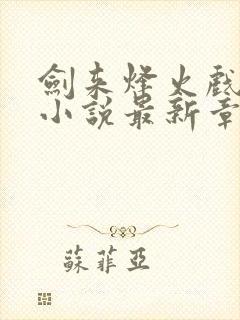 劍来烽火戲
小說最新章
蘇菲亞